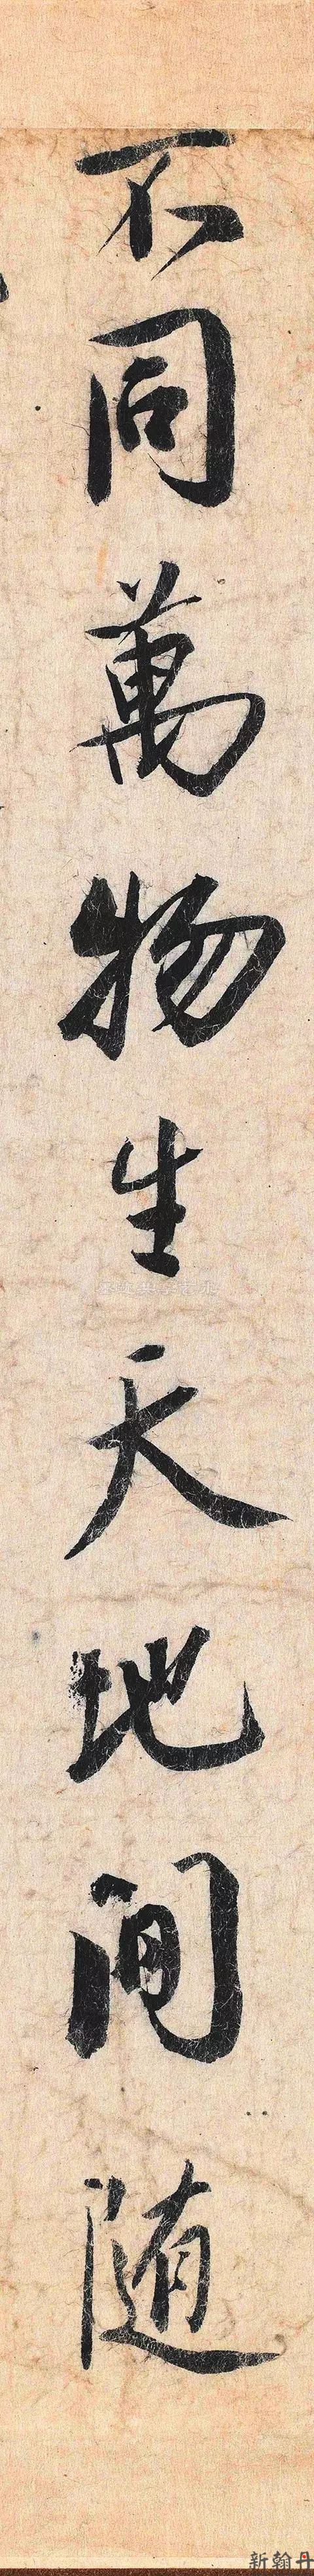 不同萬物生天地間随
新翰丹